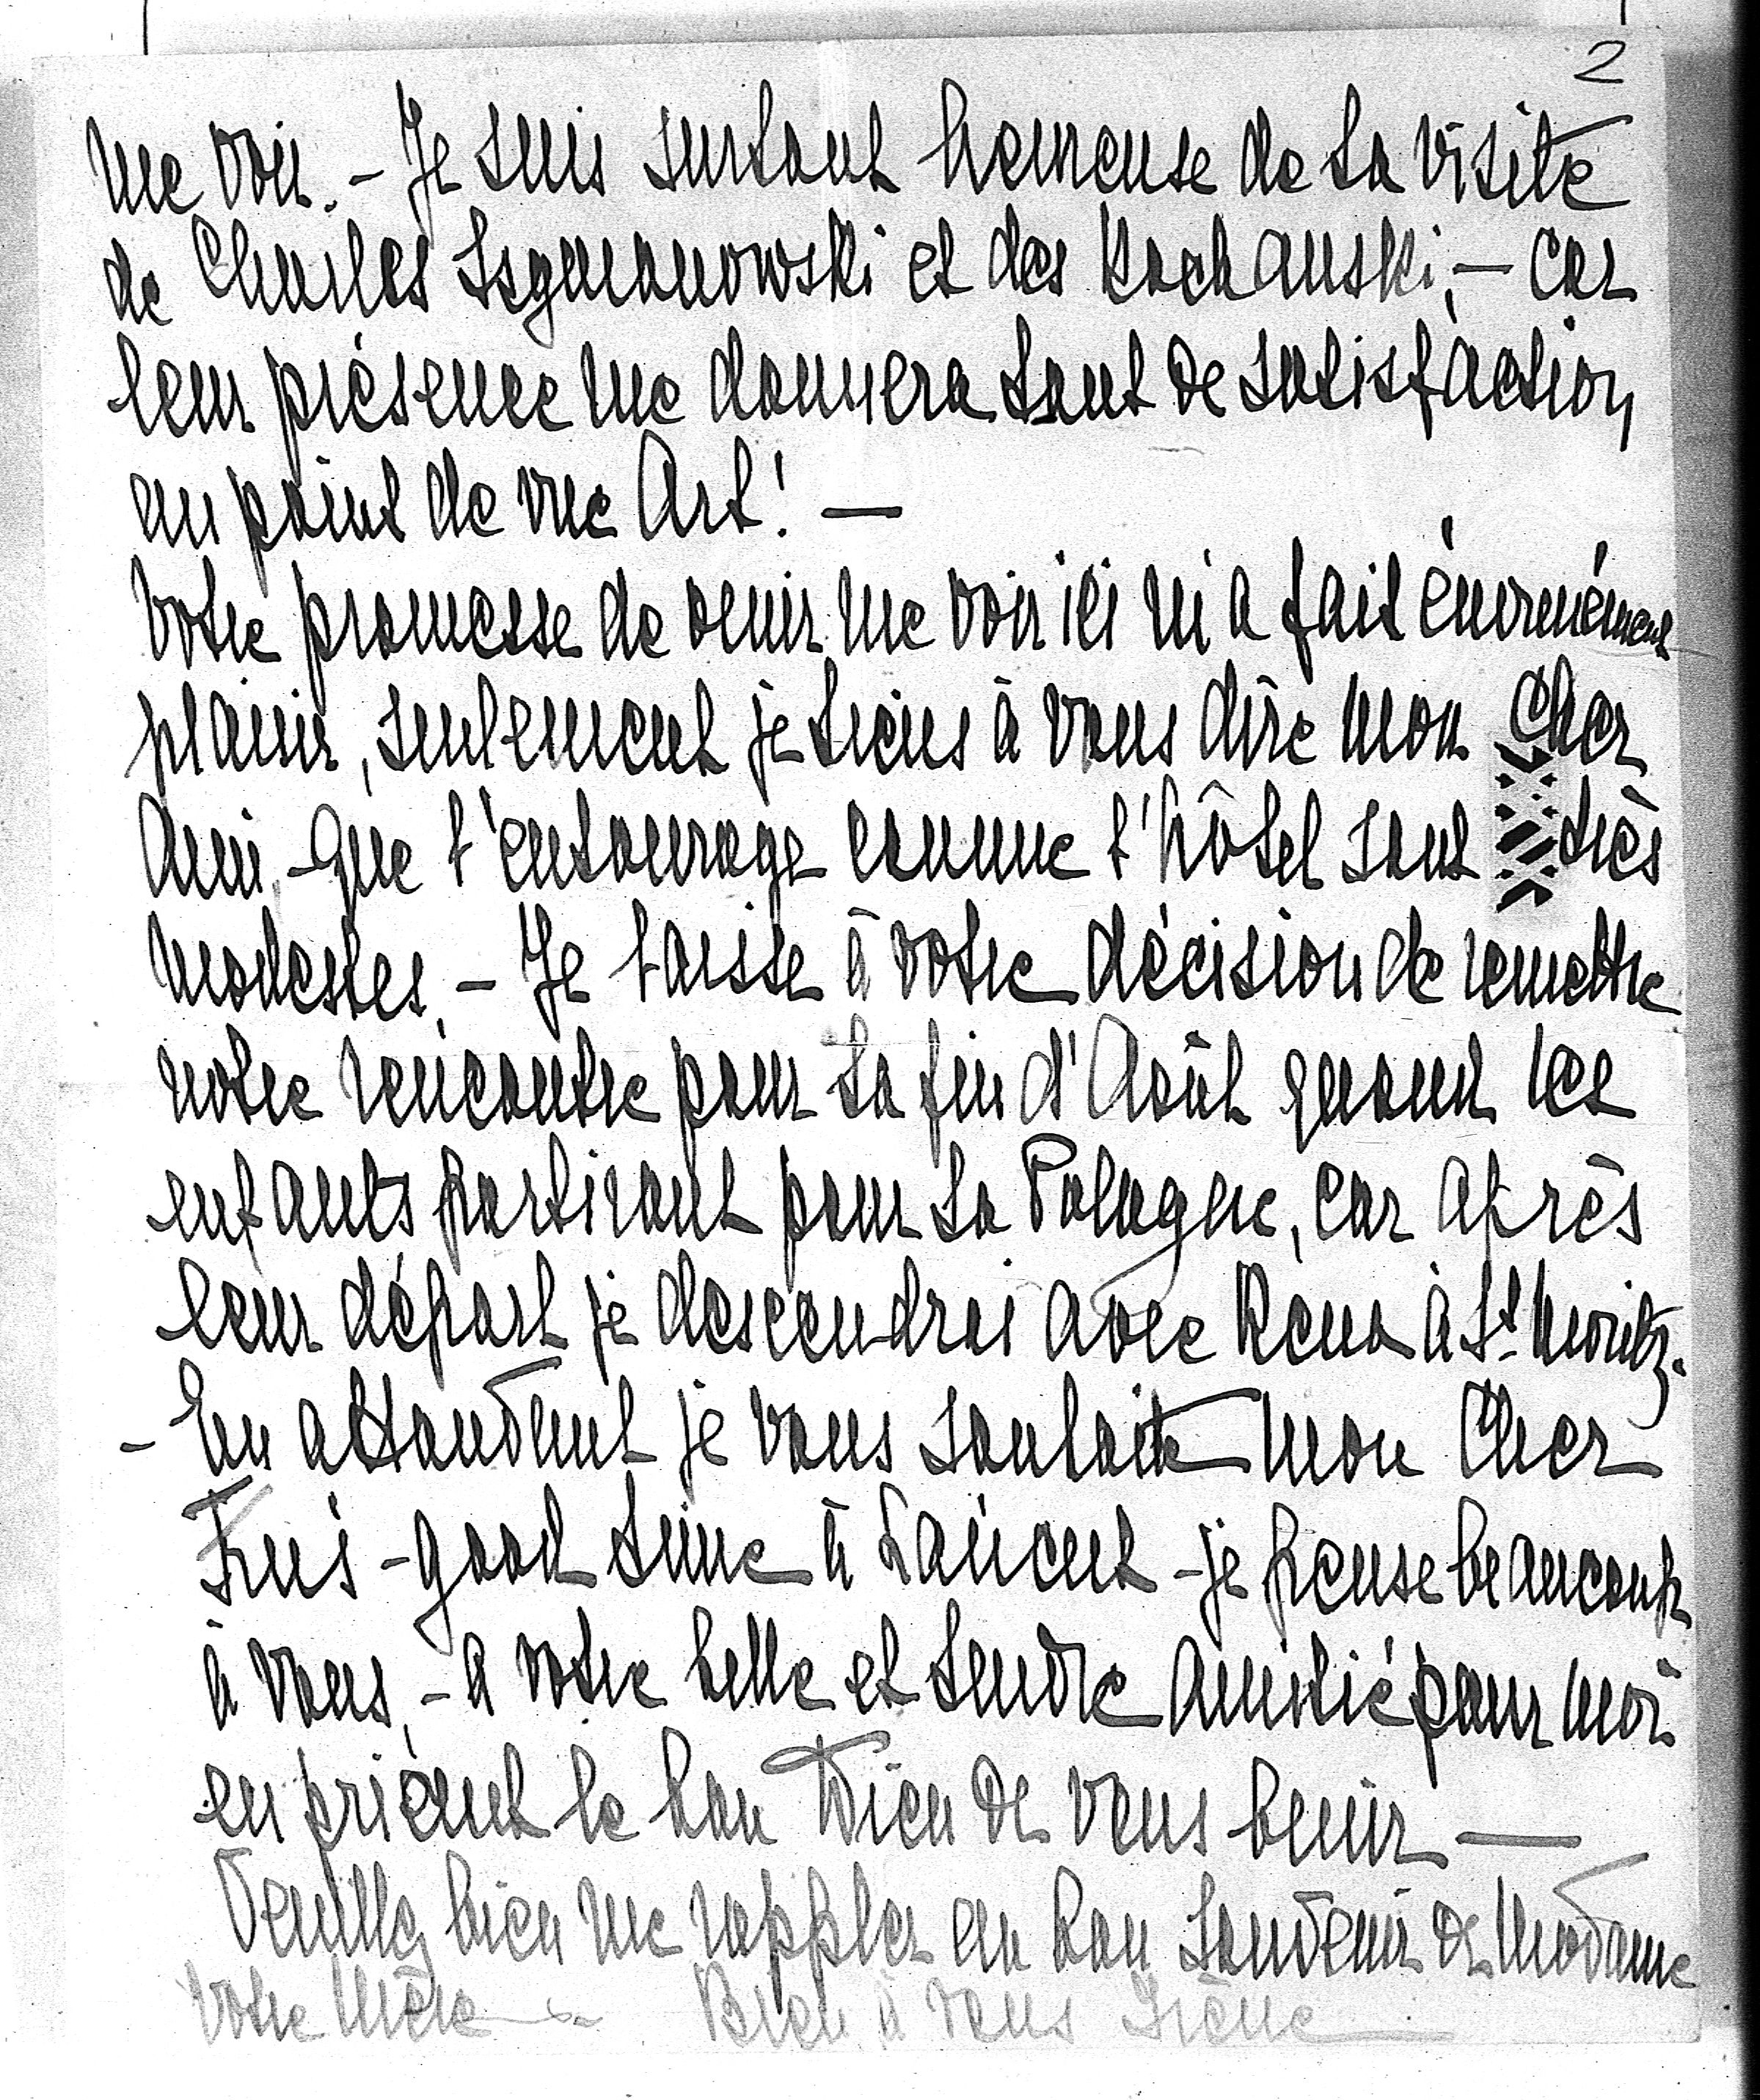 2
me voir. – Je suis surtout heureuse de la visite
de Charles Szymanowski et des Kochanski, – car
leur présence me donnera tant de satisfaction
au point de vue Art! —
Votre promesse de venir me voir ici m'a fait énormément
plaisir, seulement je tiens à vous dire mon Cher
Ami – que l'entourage comme l'hôtel sont très
modestes. – Je laisse à votre décision de remettre
notre rencontre pour la fin d'Août quand les
enfants partiront pour la Pologne, car après
leur départ je descendrai avec à St. Moritz.
– En attendant je vous souhaite mon Cher
– good time à Lancut – je pense beaucoup
à vous, – à votre belle et tendre amitié pour moi
en priant le bon Dieu de vous benir —
Veuillez bien me rappler au bon souvenir de Madame
Votre Mère – Bien à vous Irène